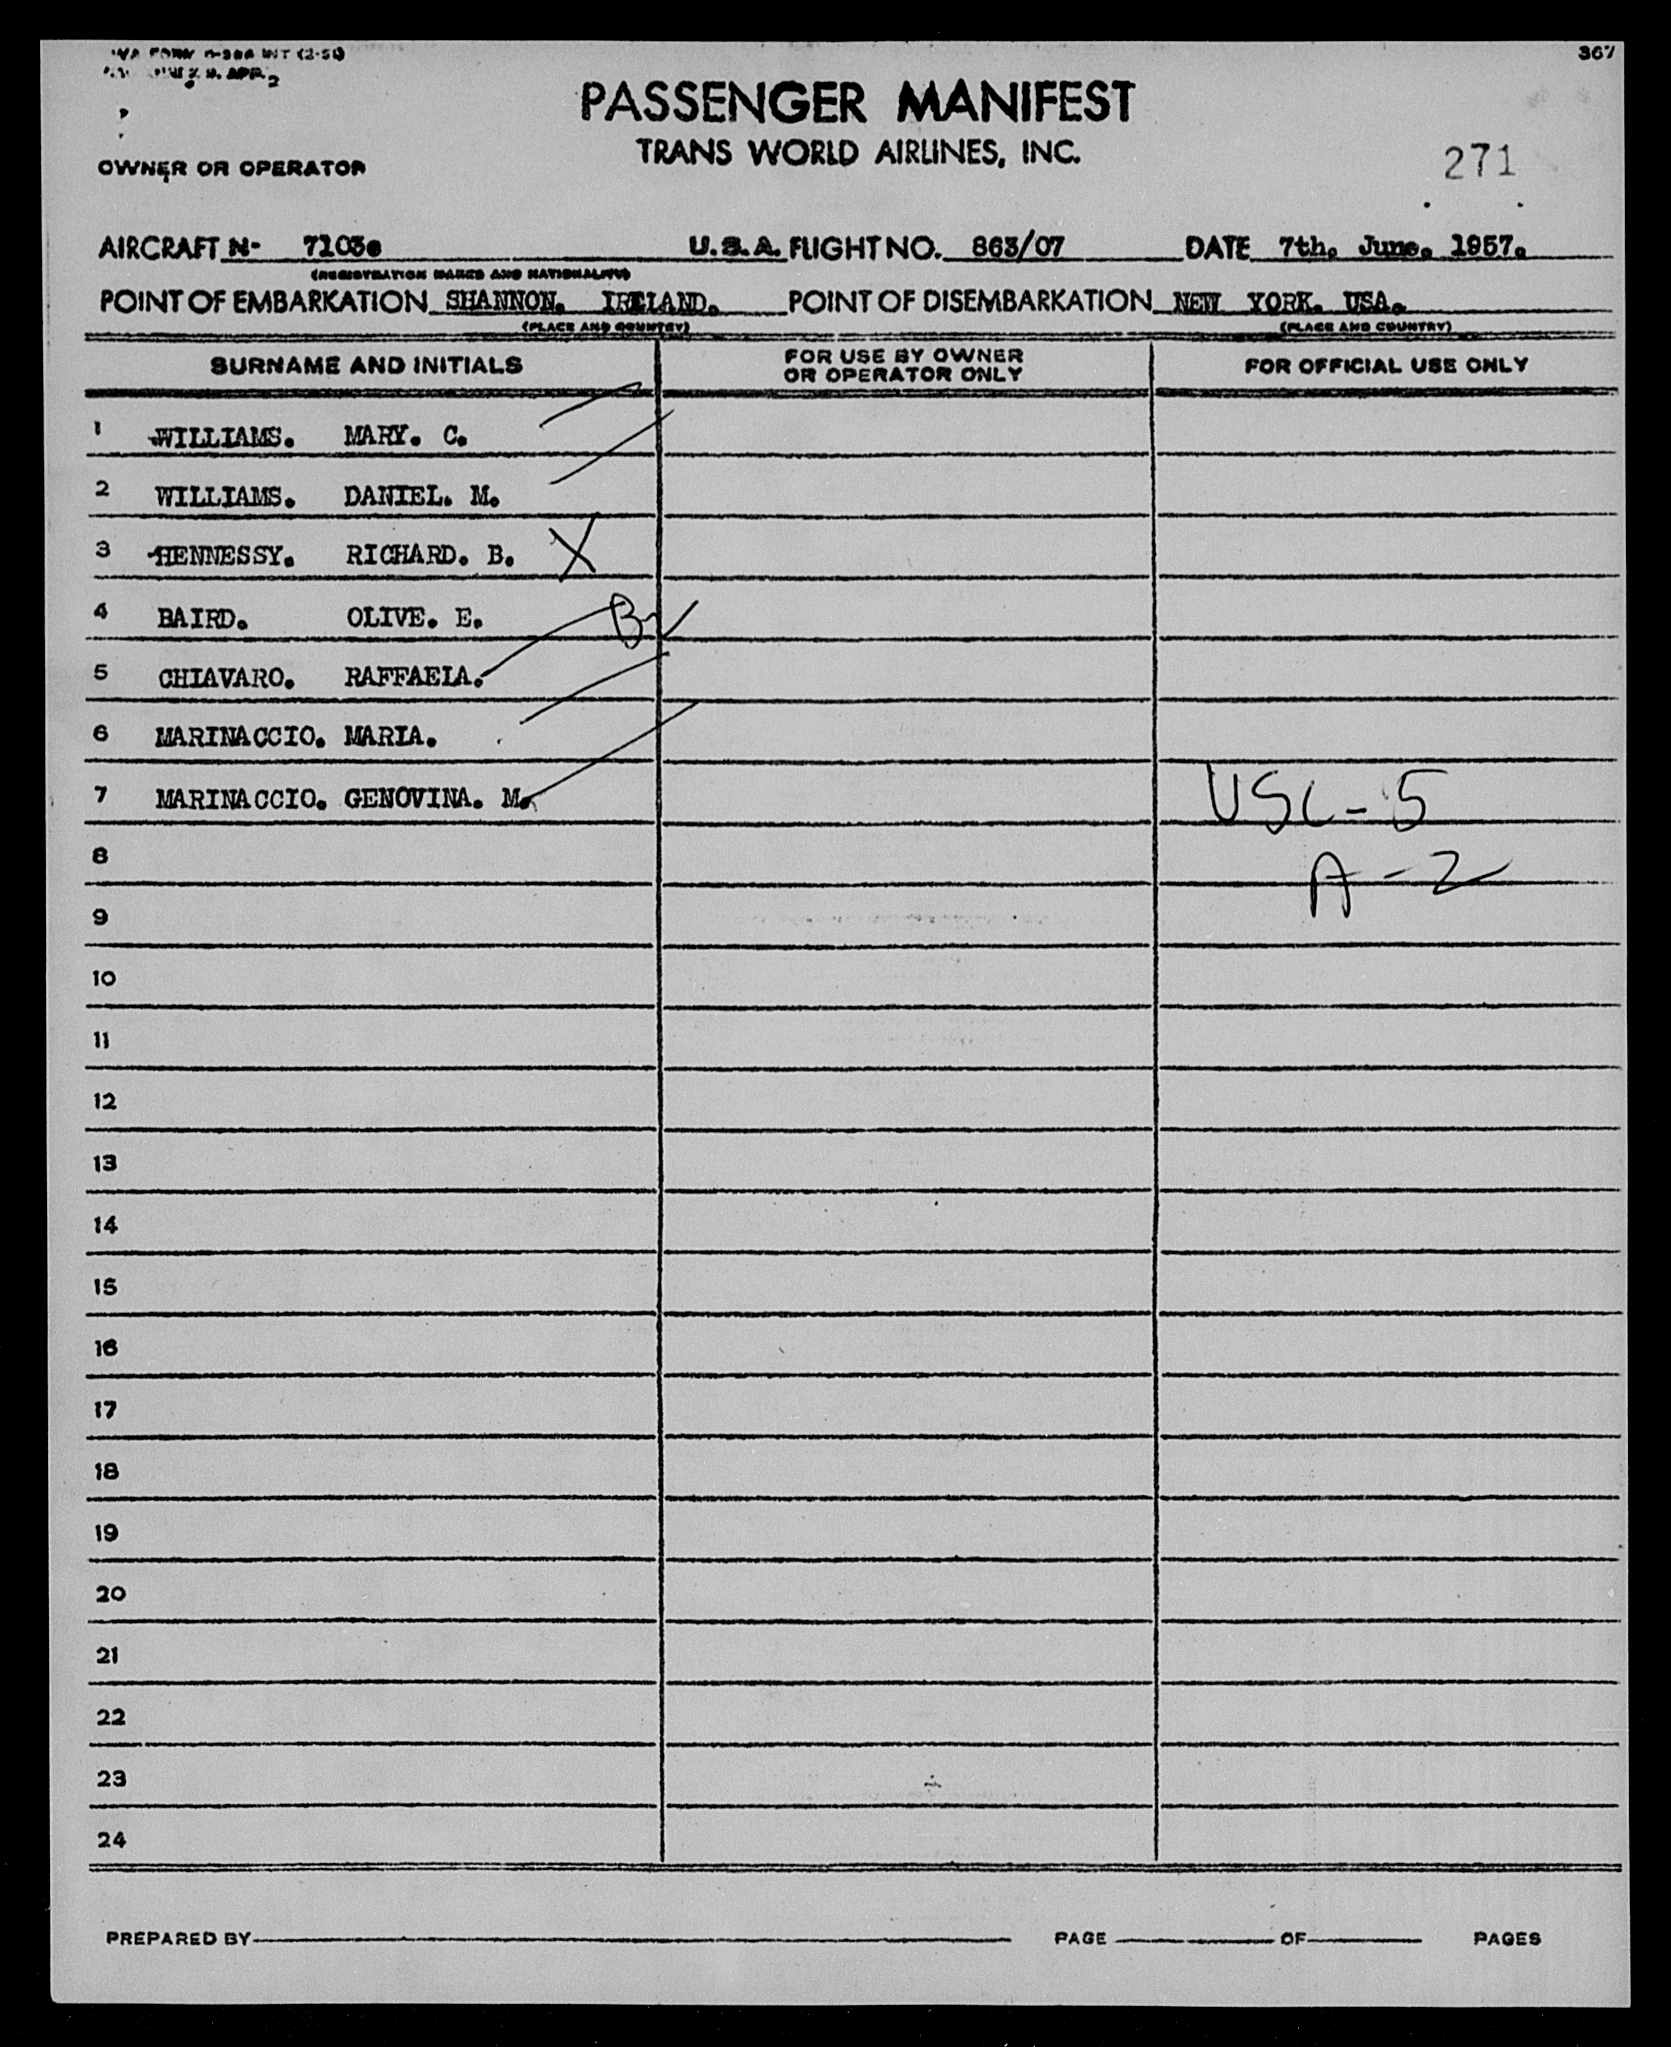 367
PASSENGER MANIFEST
TRANS WORLD AIRLINES, INC.
OWNER OR OPERATOR
271
AIRCRAFT N- 7103. U.S.A. FLIGHT NO. 863/07 DATE 7th. June. 1957.
(REGISTRATION MARKS AND NATIONALITY)
POINT OF EMBARKATION SHANNON. IRELAND. POINT OF DISEMBARKATION NEW YORK. USA.
(PLACE AND COUNTRY) (PLACE AND COUNTRY)
SURNAME AND INITIALS FOR USE BY OWNER OR OPERATOR ONLY FOR OFFICIAL USE ONLY
1 WILLIAMS. MARY. C.
2 WILLIAMS. DANIEL. M.
3 HENNESSY. RICHARD. B. X
4 BAIRD. OLIVE. E.
5 CHIAVARO. RAFFAELA.
6 MARINACCIO. MARIA.
7 MARINACCIO. GENOVINA. M. USC - 5
8 A - 2
9
10
11
12
13
14
15
16
17
18
19
20
21
22
23
24
PREPARED BY PAGE OF PAGES